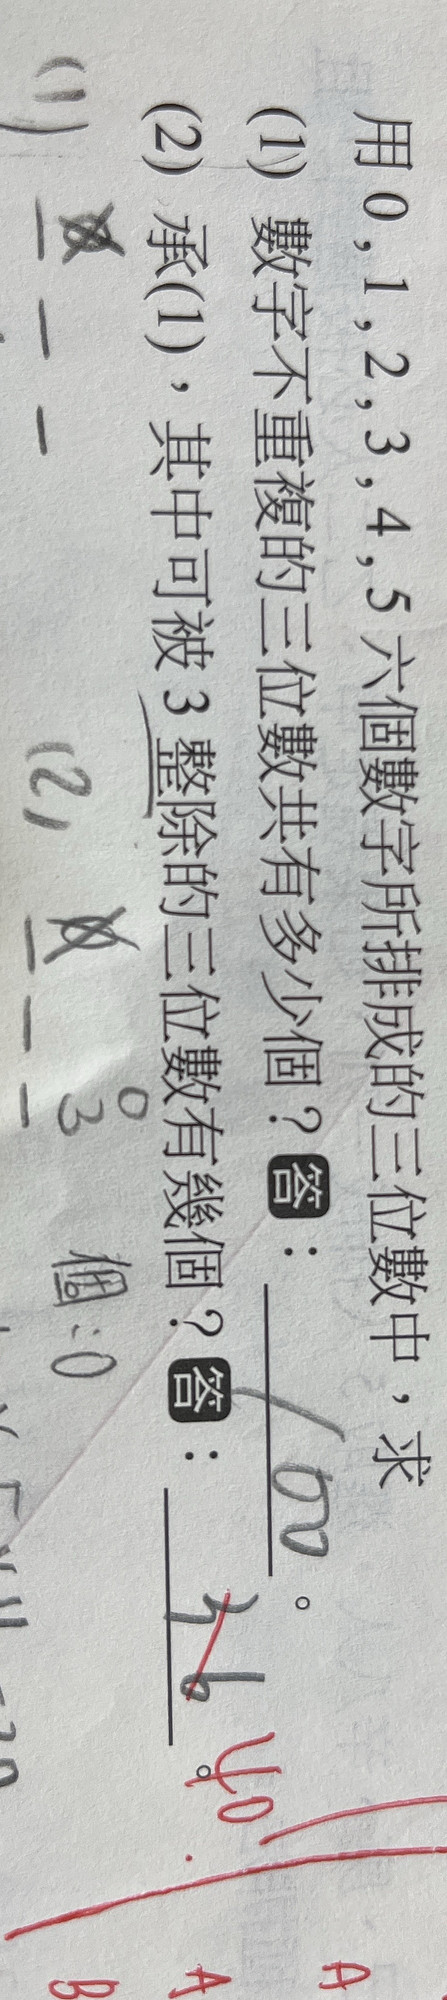 用0,1,2,3,4,5六個數字所排成的三位數中,求
(1) 數字不重複的三位數共有多少個?答: 100 。
(2) 承(1),其中可被3整除的三位數有幾個?答: 36 。 40
(1)
(2)
0
3
個:0
A
A
B